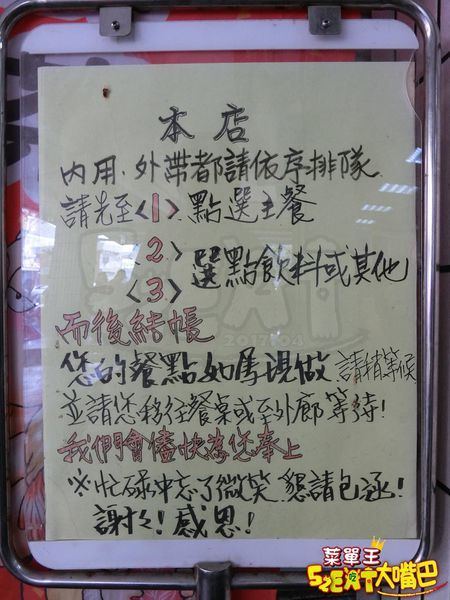 本店
內用.外帶都請依序排隊.
請先至<1>點選主餐
<2.>
<3.>選點飲料或其他
而後結帳
您的餐點如屬現做 請稍等候
並請您移往餐桌或至外廊等待!
我們會儘快為您奉上
※忙碌中忘了微笑.懇請包涵!
謝々!感恩!
2017.04
菜單王
SZEXT大嘴巴